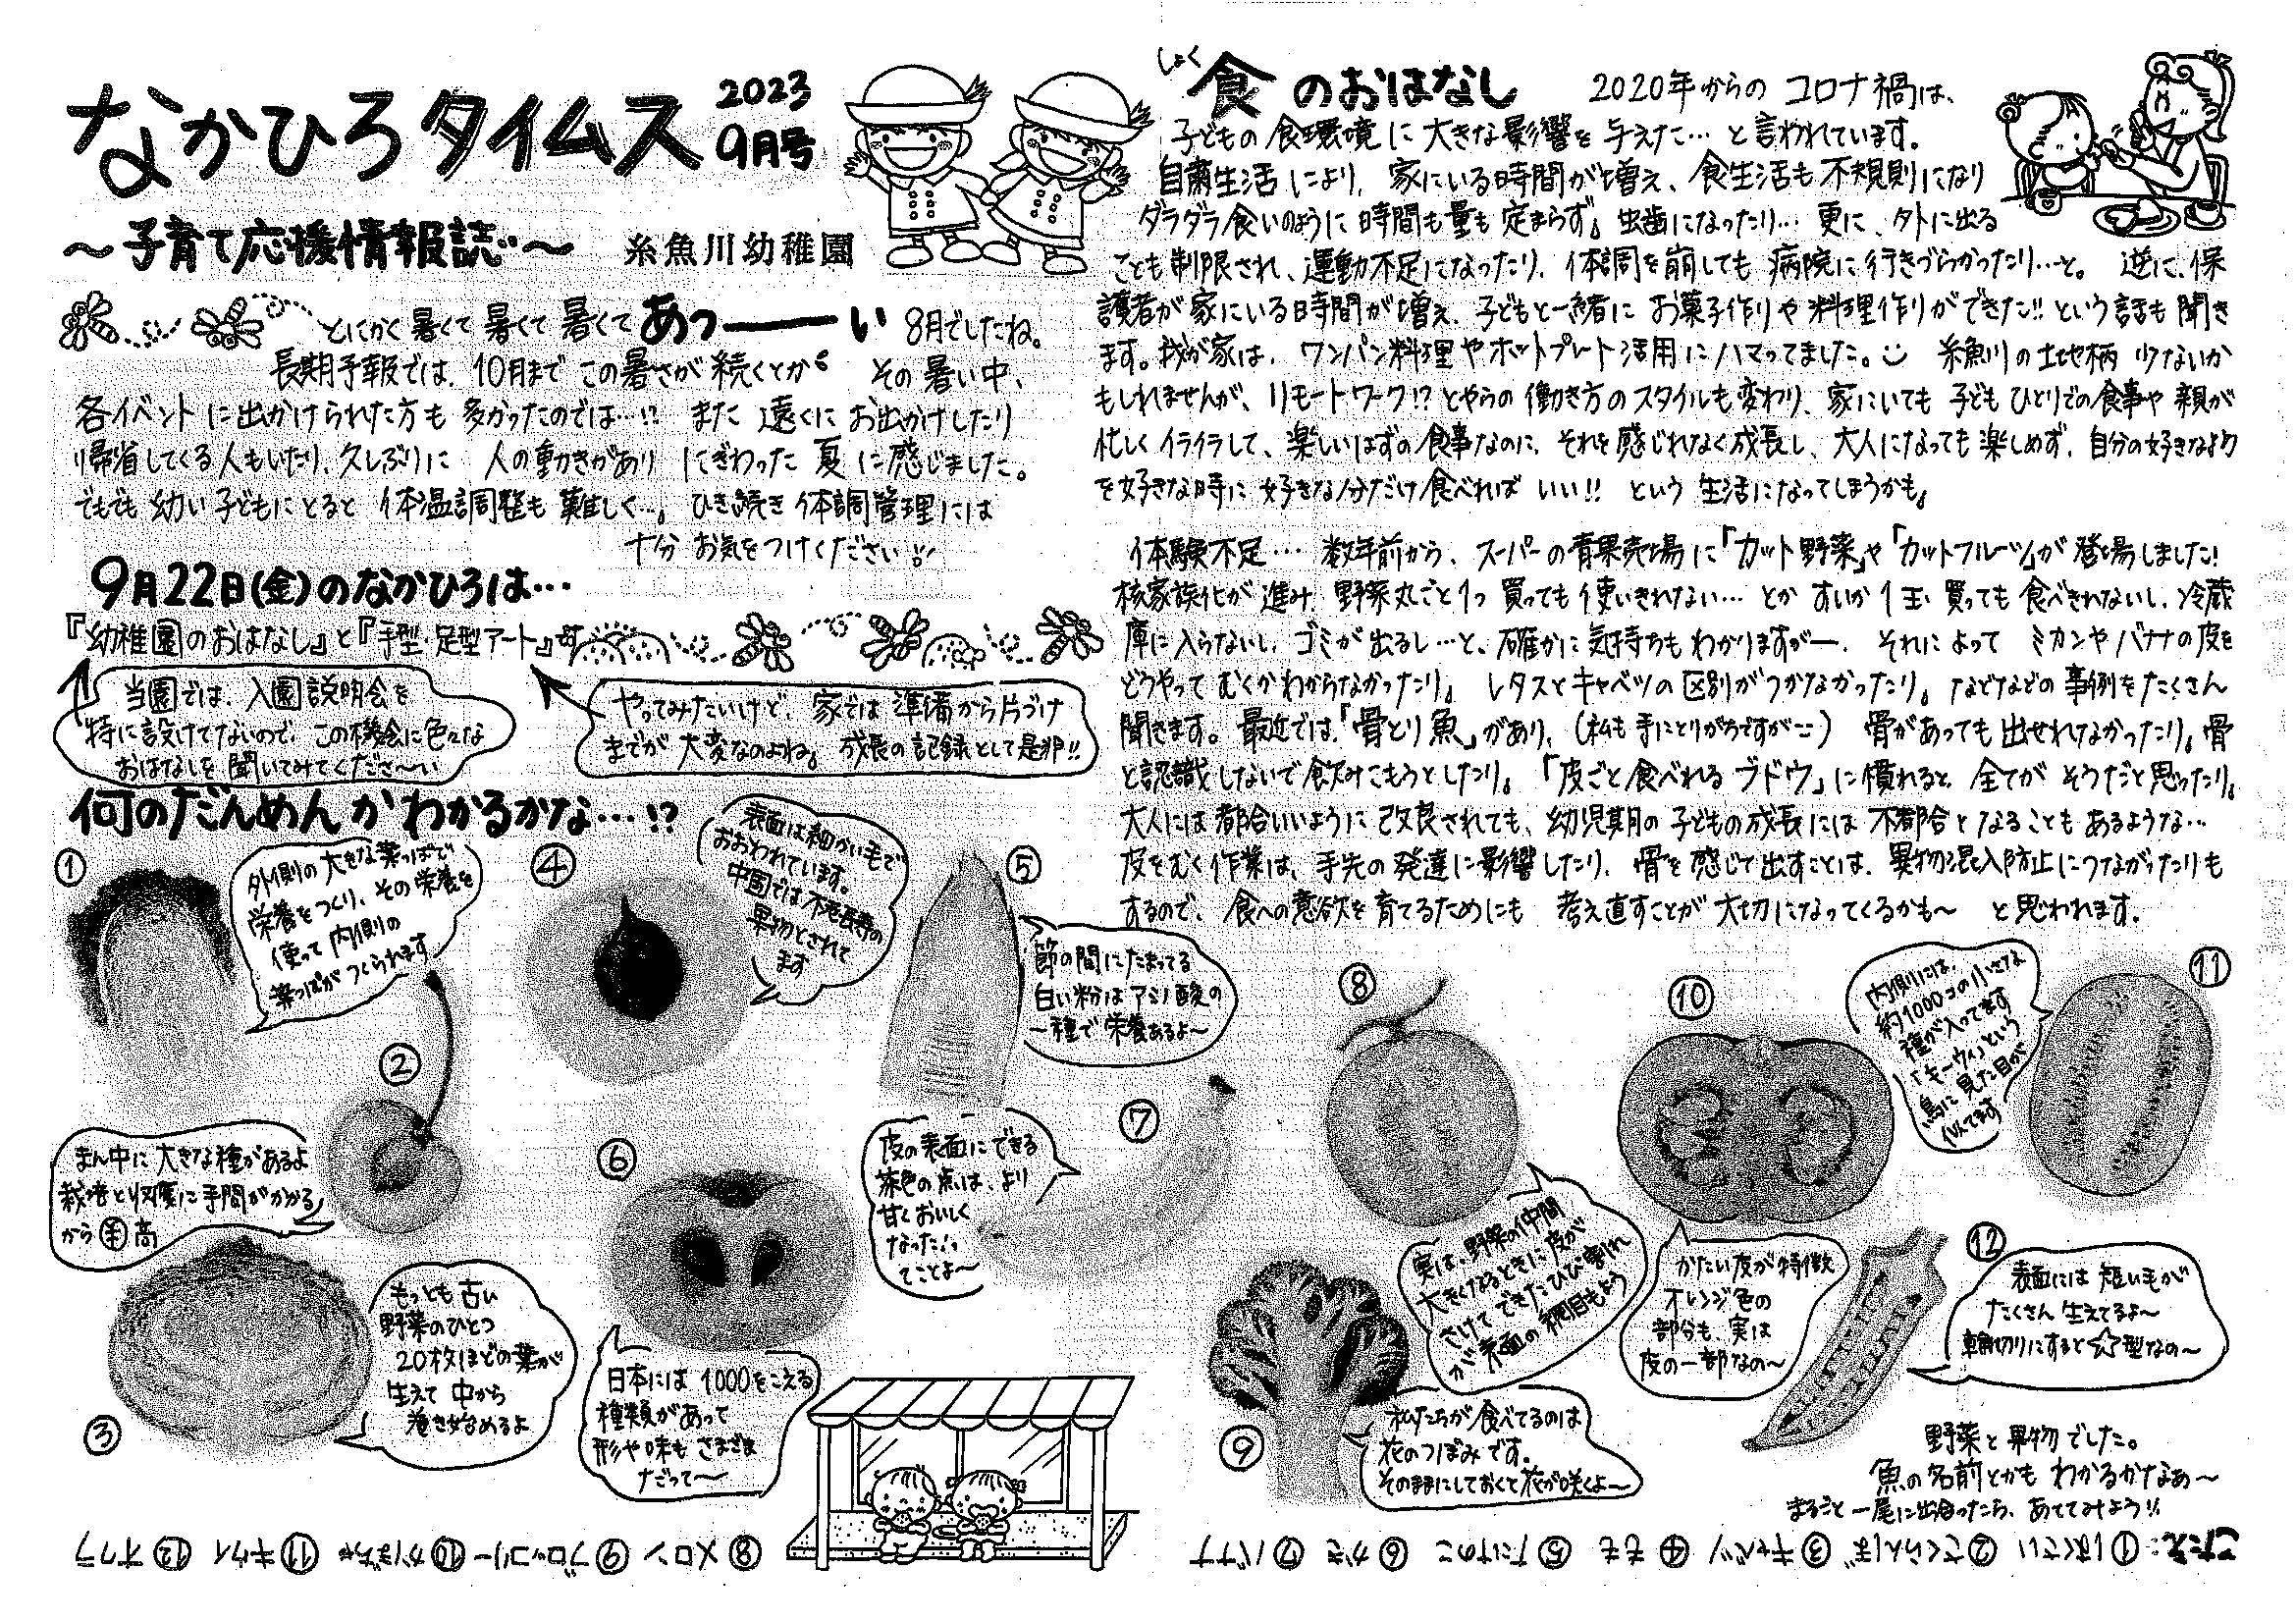 なかひろタイムス
2023
9月号
～子育て応援情報誌～
糸魚川幼稚園
とにかく暑くて暑くて暑くて あっーーい 8月でしたね。
長期予報では、10月までこの暑さが続くとか。 その暑い中、
各イベントに出かけられた方も多かったのでは…!? また遠くにお出かけしたり
帰省してくる人もいたり、久しぶりに 人の動きがあり にぎわった夏に感じました。
でもでも幼い子どもにとると 体温調整も難しく…。 ひき続き体調管理には
十分お気をつけください!!
9月22日(金)のなかひろは…
『幼稚園のおはなし』と『手型・足型アート』です
当園では、入園説明会を
特に設けてないので、この機会に色々な
おはなしを聞いてみてくださ～い
やってみたいけど、家では準備から片づけ
までが大変なのよね。 成長の記録として是非!!
何のだんめんかわかるかな…!?
①
外側の大きな葉っぱで
栄養をつくり、その栄養を
使って内側の
葉っぱがつくられます
②
まん中に大きな種があるよ
栽培と収穫に手間がかかる
から㊍高
③
もっとも古い
野菜のひとつ
20枚ほどの葉が
生えて中から
巻き始めるよ
④
表面は細かい毛で
おおわれています。
中国では不老長寿の
果物とされて
ます
⑤
節の間にたまってる
白い粉はアミノ酸の
一種で栄養あるよ～
⑥
日本には1000をこえる
種類があって
形や味もさまざま
だって～
⑦
皮の表面にできる
茶色の点は、より
甘くおいしく
なったよっ
てことよ～
しょく
食のおはなし
2020年からのコロナ禍は、
子どもの食環境に大きな影響を与えた…と言われています。
自粛生活により、家にいる時間が増え、食生活も不規則になり
ダラダラ食いのように時間も量も定まらず。虫歯になったり… 更に、外に出る
ことも制限され、運動不足になったり、体調を崩しても病院に行きづらかったり…と。 逆に、保
護者が家にいる時間が増え、子どもと一緒にお菓子作りや料理作りができた!!という話も聞き
ます。我が家は、ワンパン料理やホットプレート活用にハマってました。 糸魚川の土地柄少ないか
もしれませんが、リモートワーク!?とやらの働き方のスタイルも変わり、家にいても子どもひとりでの食事や親が
忙しくイライラして、楽しいはずの食事なのに、それを感じれなく成長し、大人になっても楽しめず、自分の好きなもの
を好きな時に好きな分だけ食べればいい!! という生活になってしまうかも。
体験不足… 数年前から、スーパーの青果売場に「カット野菜」や「カットフルーツ」が登場しました!
核家族化が進み、野菜丸ごと1つ買っても使いきれない… とか すいか1玉買っても食べきれないし、冷蔵
庫に入らないし、ゴミが出るし…と、確かに気持ちもわかりますがー、それによって ミカンやバナナの皮を
どうやってむくかわからなかったり。 レタスとキャベツの区別がつかなかったり。などなどの事例をたくさん
聞きます。最近では、「骨とり魚」があり、(私も手にとりがちですが--) 骨があっても出せれなかったり。骨
と認識しないで飲みこもうとしたり。「皮ごと食べれるブドウ」に慣れると、全てがそうだと思ったり。
大人には都合いいように改良されても、幼児期の子どもの成長には不都合となることもあるような…
皮をむく作業は、手先の発達に影響したり、骨を感じて出すことは、異物混入防止につながったりも
するので、食への意欲を育てるためにも 考え直すことが大切になってくるかも～ と思われます。
⑧
実は、野菜の仲間
大きくなるときに皮が
さけてできたひび割れ
が表面の網目もよう
⑨
私たちが食べてるのは
花のつぼみです。
そのままにしておくと花が咲くよ～
⑩
かたい皮が特徴
オレンジ色の
部分も、実は
皮の一部なの～
⑪
内側には、
約1000コの小さな
種が入ってます
「キーウィ」という
鳥に見た目が
似てます
⑫
表面には短い毛が
たくさん生えてるよ～
輪切りにすると☆型なの～
野菜と果物でした。
魚の名前とかもわかるかなぁ～
まるごと一尾に出会ったら、あててみよう!!
こたえ:①はくさい ②さくらんぼ ③キャベツ ④もも ⑤たけのこ ⑥かき ⑦バナナ
⑧メロン ⑨ブロッコリー ⑩かぼちゃ ⑪キウイ ⑫オクラ